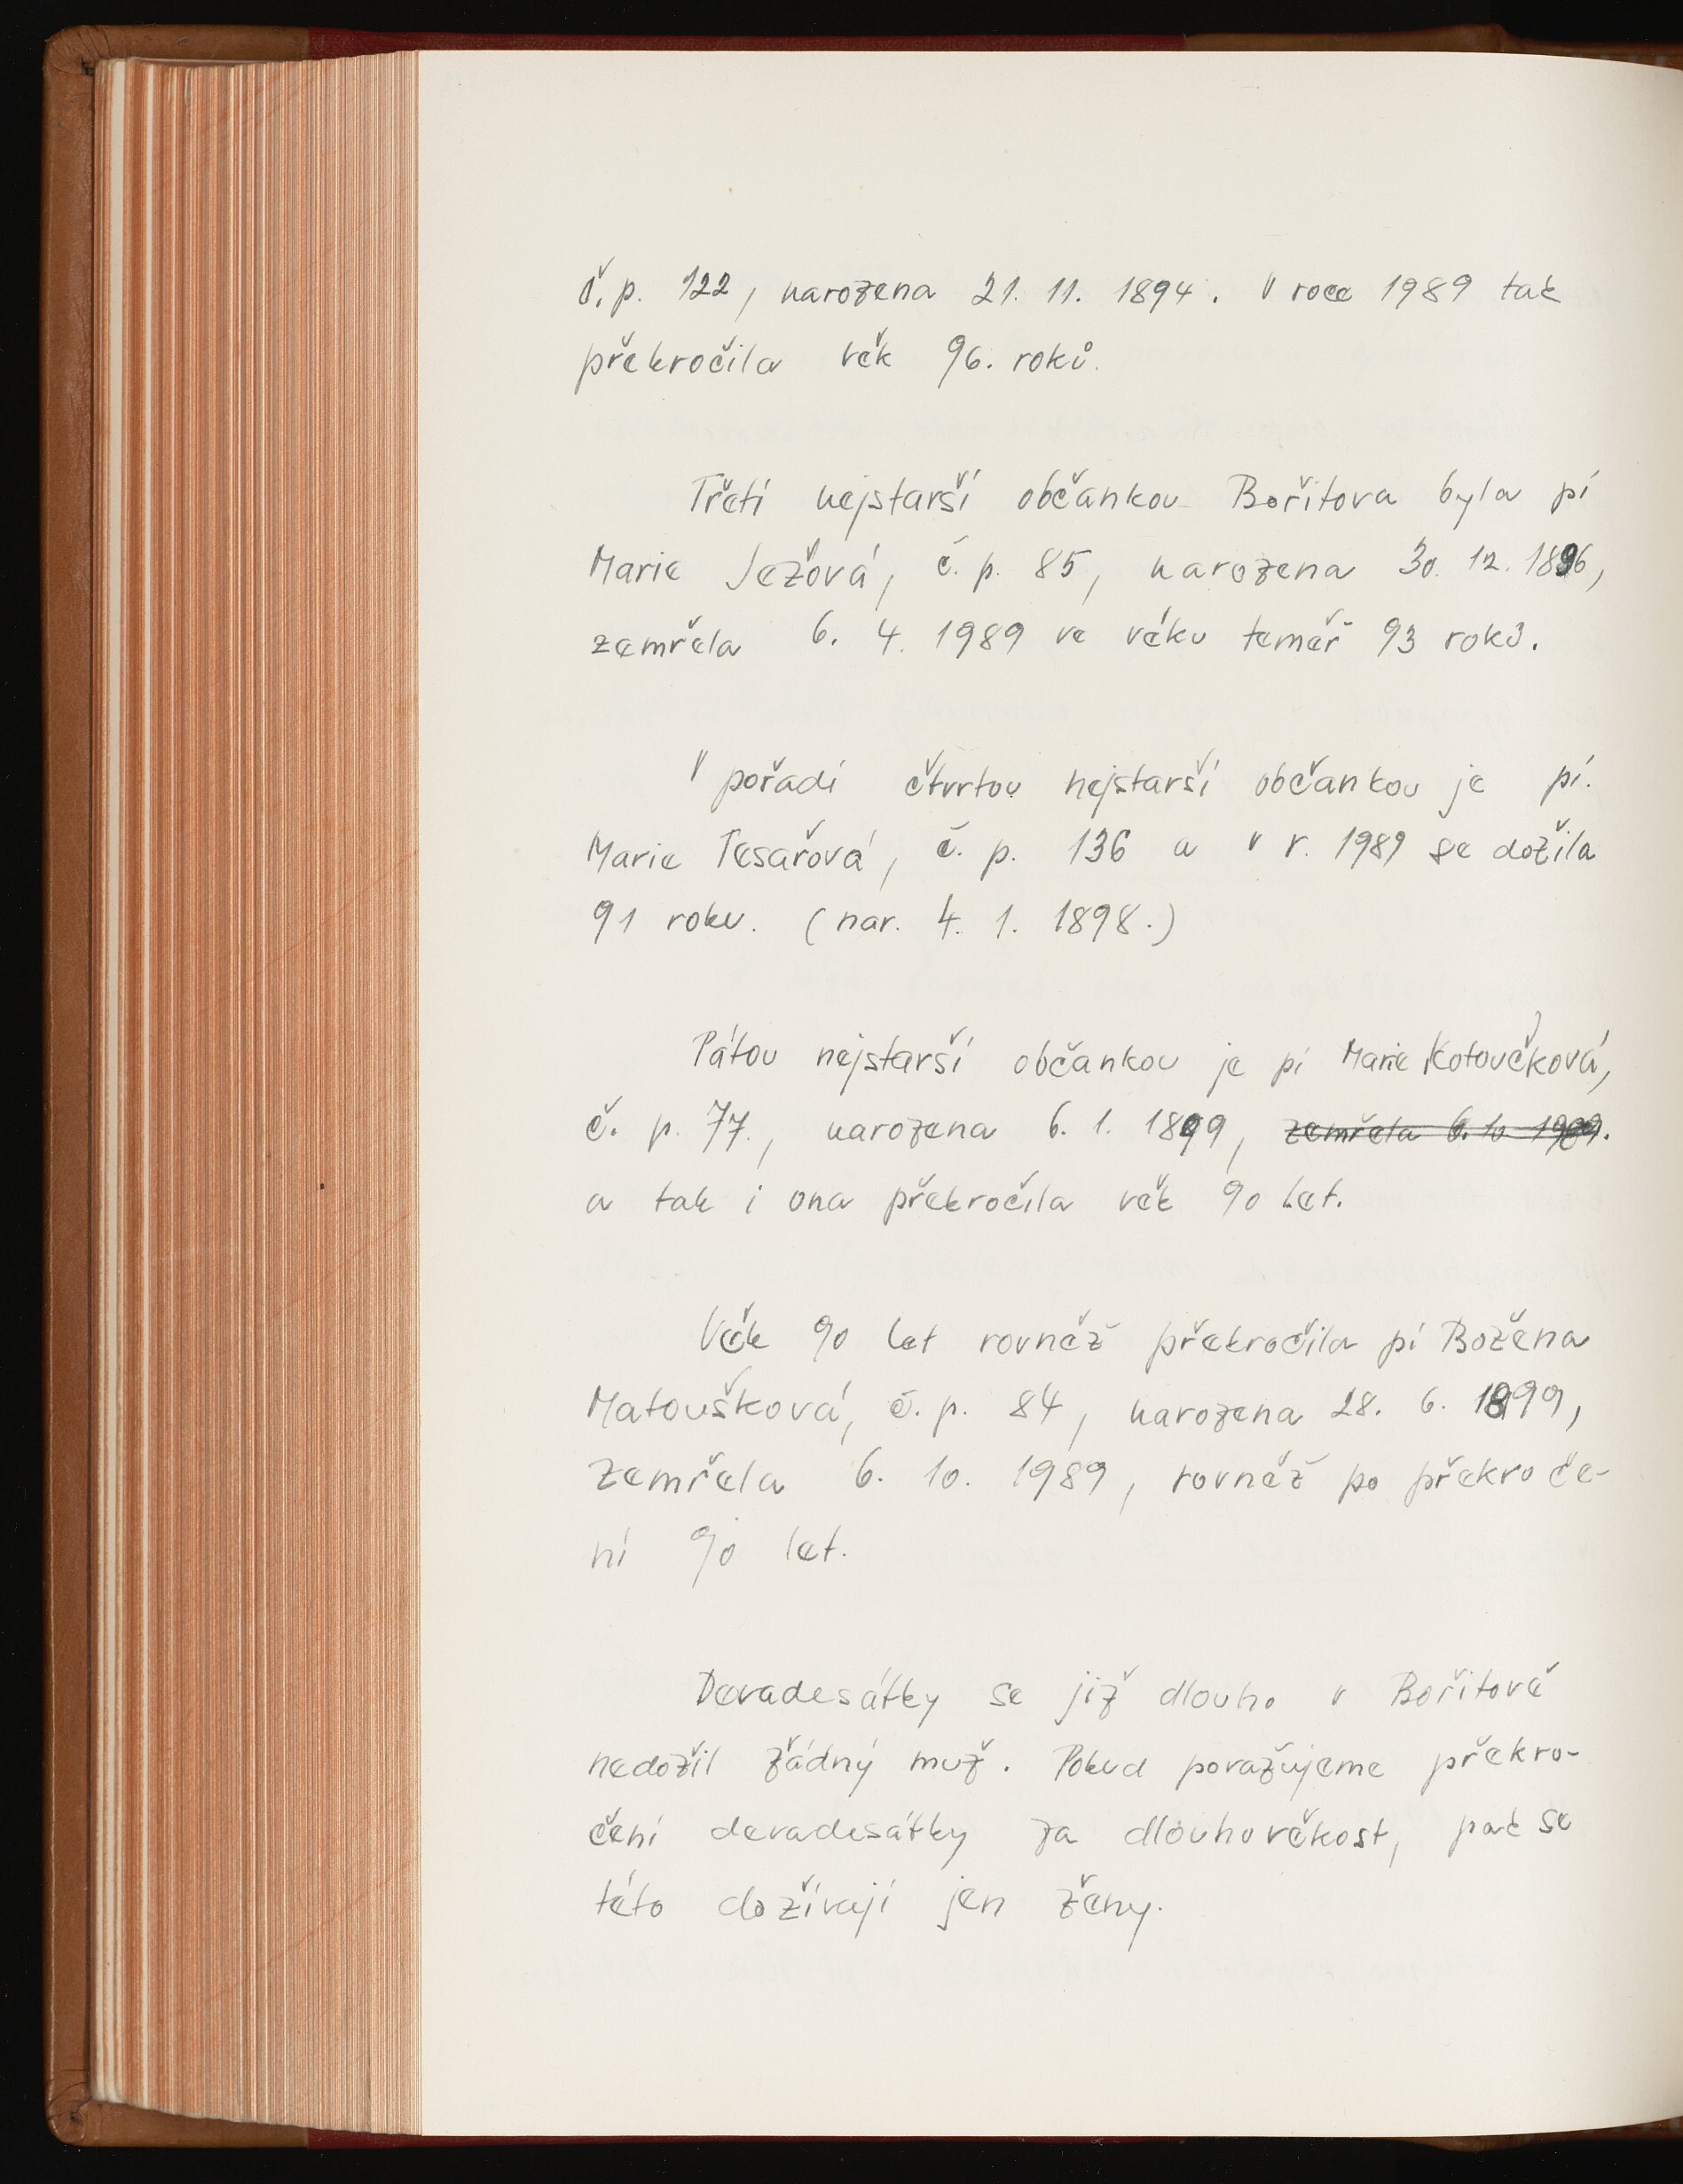 č. p. 122, narozena 21. 11. 1894. V roce 1989 tak
překročila věk 96. roků.
Třetí nejstarší občankou Bořitova byla pí
Marie Ježová, č. p. 85, narozena 30. 12. 1896,
zemřela 6. 4. 1989 ve věku teměř 93 roků.
V pořadí čtvrtou nejstarší občankou je pí.
Marie Tesařová, č. p. 136 a v r. 1989 se dožila
91 roku. (nar. 4. 1. 1898.)
Pátou nejstarší občankou je pí Marie Kotoučková,
č. p. 77., narozena 6. 1. 1899, zemřela 6. 10. 1989.
a tak i ona překročila věk 90 let.
Věk 90 let rovněž překročila pí Božena
Matoušková, č. p. 84, narozena 28. 6. 1899,
zemřela 6. 10. 1989, rovněž po překroče-
ní 90 let.
Devadesátky se již dlouho v Bořitově
nedožil žádný muž. Pokud považujeme překro-
čení devadesátky za dlouhověkost, pak se
této dožívají jen ženy.